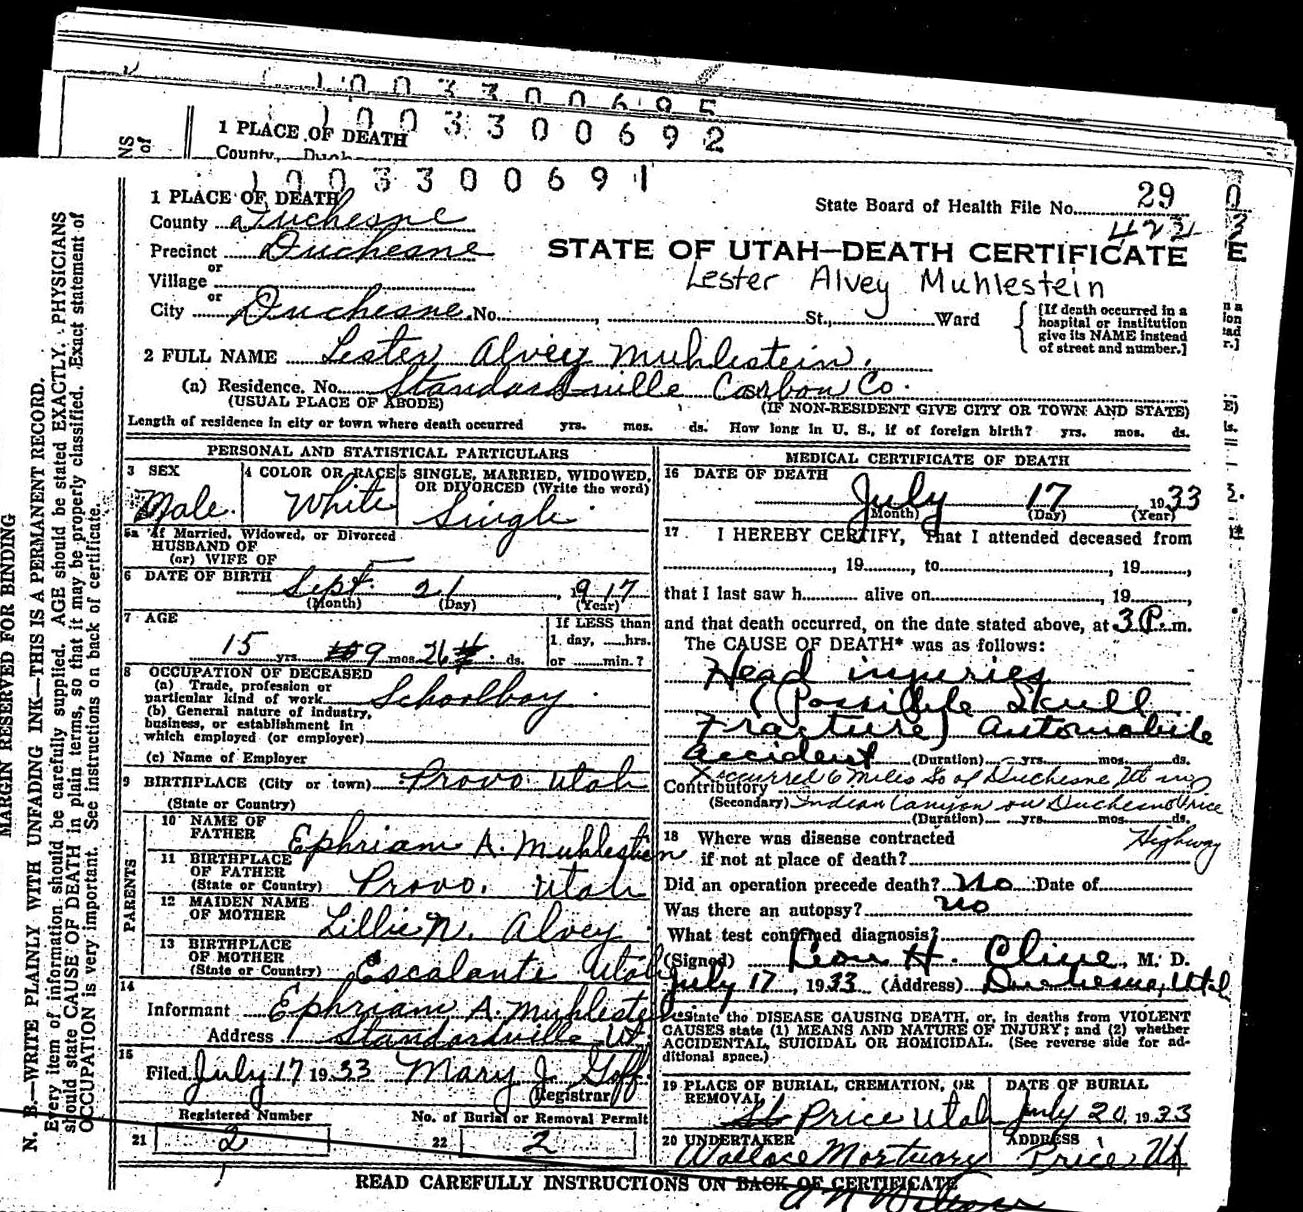 1 0 0 3 3 0 0 6 9 5
1 0 0 3 3 0 0 6 9 2
1 PLACE OF DEATH
County
1 0 0 3 3 0 0 6 9 1
1 PLACE OF DEATH
State Board of Health File No. 29
422
County Duchesne
Precinct Duchesne
STATE OF UTAH—DEATH CERTIFICATE
Lester Alvey Muhlestein
or
Village
or
City Duchesne No. , St., Ward
[If death occurred in a
hospital or institution
give its NAME instead
of street and number.]
2 FULL NAME Lester Alvey Muhlestein.
(a) Residence. No. Standardville Carbon Co.
(USUAL PLACE OF ABODE) (IF NON-RESIDENT GIVE CITY OR TOWN AND STATE)
Length of residence in city or town where death occurred yrs. mos. ds. How long in U. S., if of foreign birth? yrs. mos. ds.
PERSONAL AND STATISTICAL PARTICULARS
3 SEX
Male.
4 COLOR OR RACE
White
5 SINGLE, MARRIED, WIDOWED,
OR DIVORCED (Write the word)
Single
5a If Married, Widowed, or Divorced
HUSBAND OF
(or) WIFE OF
6 DATE OF BIRTH Sept. 21, 1917
(Month) (Day) (Year)
7 AGE
15 yrs. 9 mos. 26 ds.
If LESS than
1 day, hrs.
or min.?
8 OCCUPATION OF DECEASED
(a) Trade, profession or
particular kind of work Schoolboy
(b) General nature of industry,
business, or establishment in
which employed (or employer)
(c) Name of Employer
9 BIRTHPLACE (City or town) Provo Utah
(State or Country)
PARENTS
10 NAME OF
FATHER Ephriam A. Muhlestein
11 BIRTHPLACE
OF FATHER
(State or Country) Provo. Utah
12 MAIDEN NAME
OF MOTHER Lillie N. Alvey
13 BIRTHPLACE
OF MOTHER
(State or Country) Escalante Utah
14
Informant Ephriam A. Muhlestein
Address Standardville Ut.
15
Filed July 17 1933 Mary J. Goff
Registrar
Registered Number No. of Burial or Removal Permit
21 2 22 2
MEDICAL CERTIFICATE OF DEATH
16 DATE OF DEATH
July 17 1933
(Month) (Day) (Year)
17 I HEREBY CERTIFY, That I attended deceased from
, 19 , to , 19 ,
that I last saw h alive on , 19 ,
and that death occurred, on the date stated above, at 3 P. m.
The CAUSE OF DEATH* was as follows:
Head injuries
(Possible Skull
Fracture) Automobile
accident (Duration) yrs. mos. ds.
Contributory occurred 6 Miles So of Duchesne Ut in
(Secondary) Indian Canyon on Duchesne Price
(Duration) yrs. mos. ds.
Highway
18 Where was disease contracted
if not at place of death?
Did an operation precede death? No Date of
Was there an autopsy? no
What test confirmed diagnosis?
(Signed) Leon H. Cline, M. D.
July 17, 1933 (Address) Duchesne, Utah
*State the DISEASE CAUSING DEATH, or, in deaths from VIOLENT
CAUSES state (1) MEANS AND NATURE OF INJURY; and (2) whether
ACCIDENTAL, SUICIDAL OR HOMICIDAL. (See reverse side for ad-
ditional space.)
19 PLACE OF BURIAL, CREMATION, OR
REMOVAL
Price Utah
DATE OF BURIAL
July 20, 1933
20 UNDERTAKER
Wallace Mortuary
ADDRESS
Price, Ut
READ CAREFULLY INSTRUCTIONS ON BACK OF CERTIFICATE
MARGIN RESERVED FOR BINDING
N. B.—WRITE PLAINLY WITH UNFADING INK—THIS IS A PERMANENT RECORD.
Every item of information should be carefully supplied. AGE should be stated EXACTLY. PHYSICIANS
should state CAUSE OF DEATH in plain terms, so that it may be properly classified. Exact statement of
OCCUPATION is very important. See instructions on back of certificate.